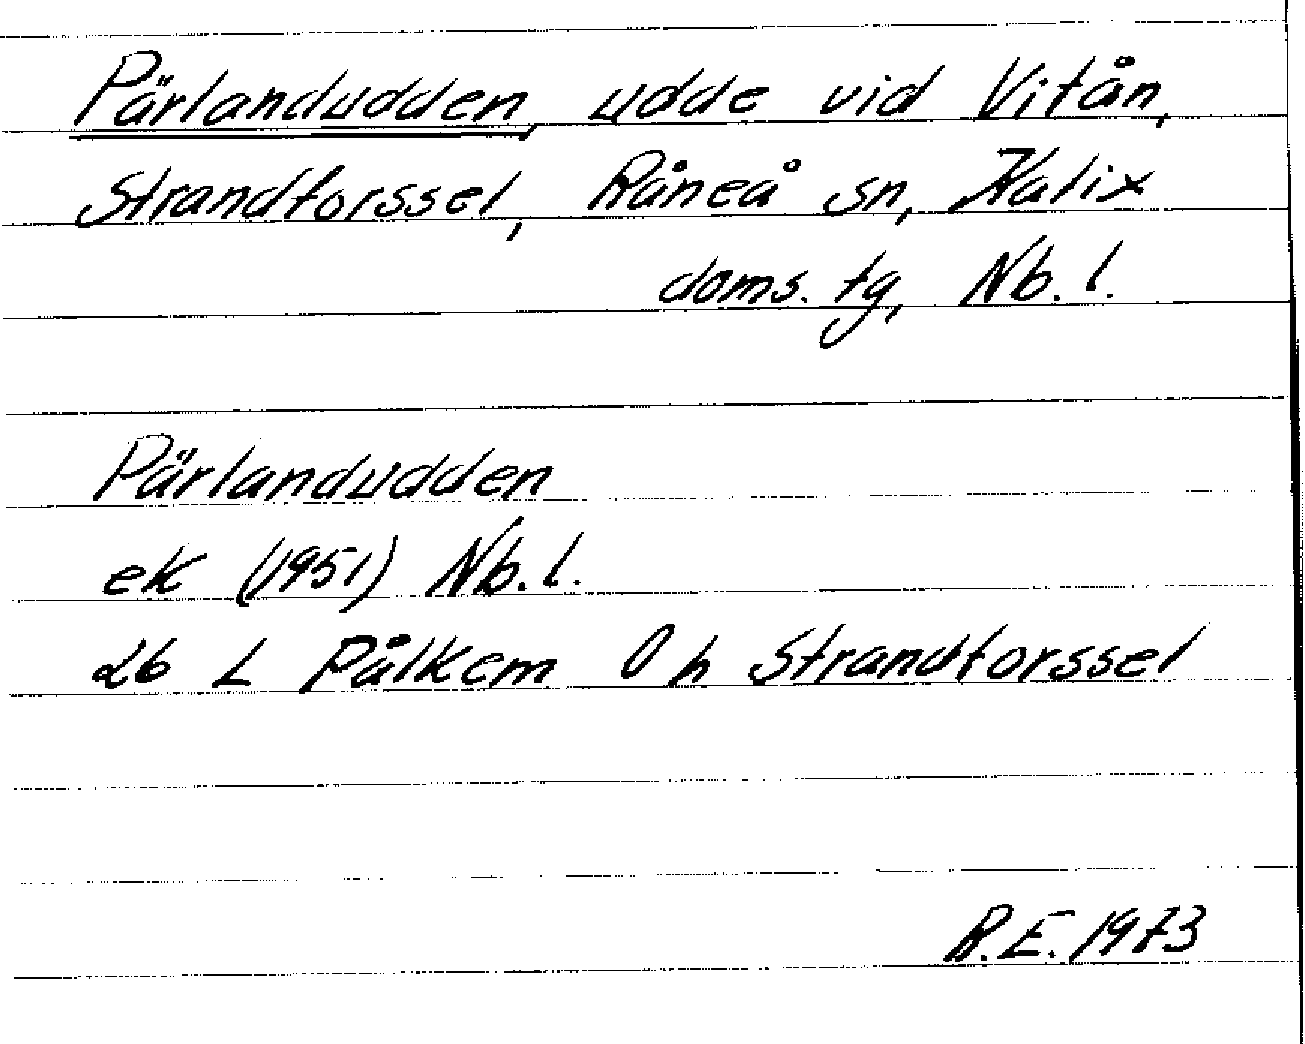 Pärlandudden, udde vid Vitån,
Strandtorssel, Råneå sn, Kalix
doms. tg, Nb. l.
Pärlandudden
ek (1951) Nb. l.
26 L Pålkem 0 h Strandtorssel
R.E. 1973